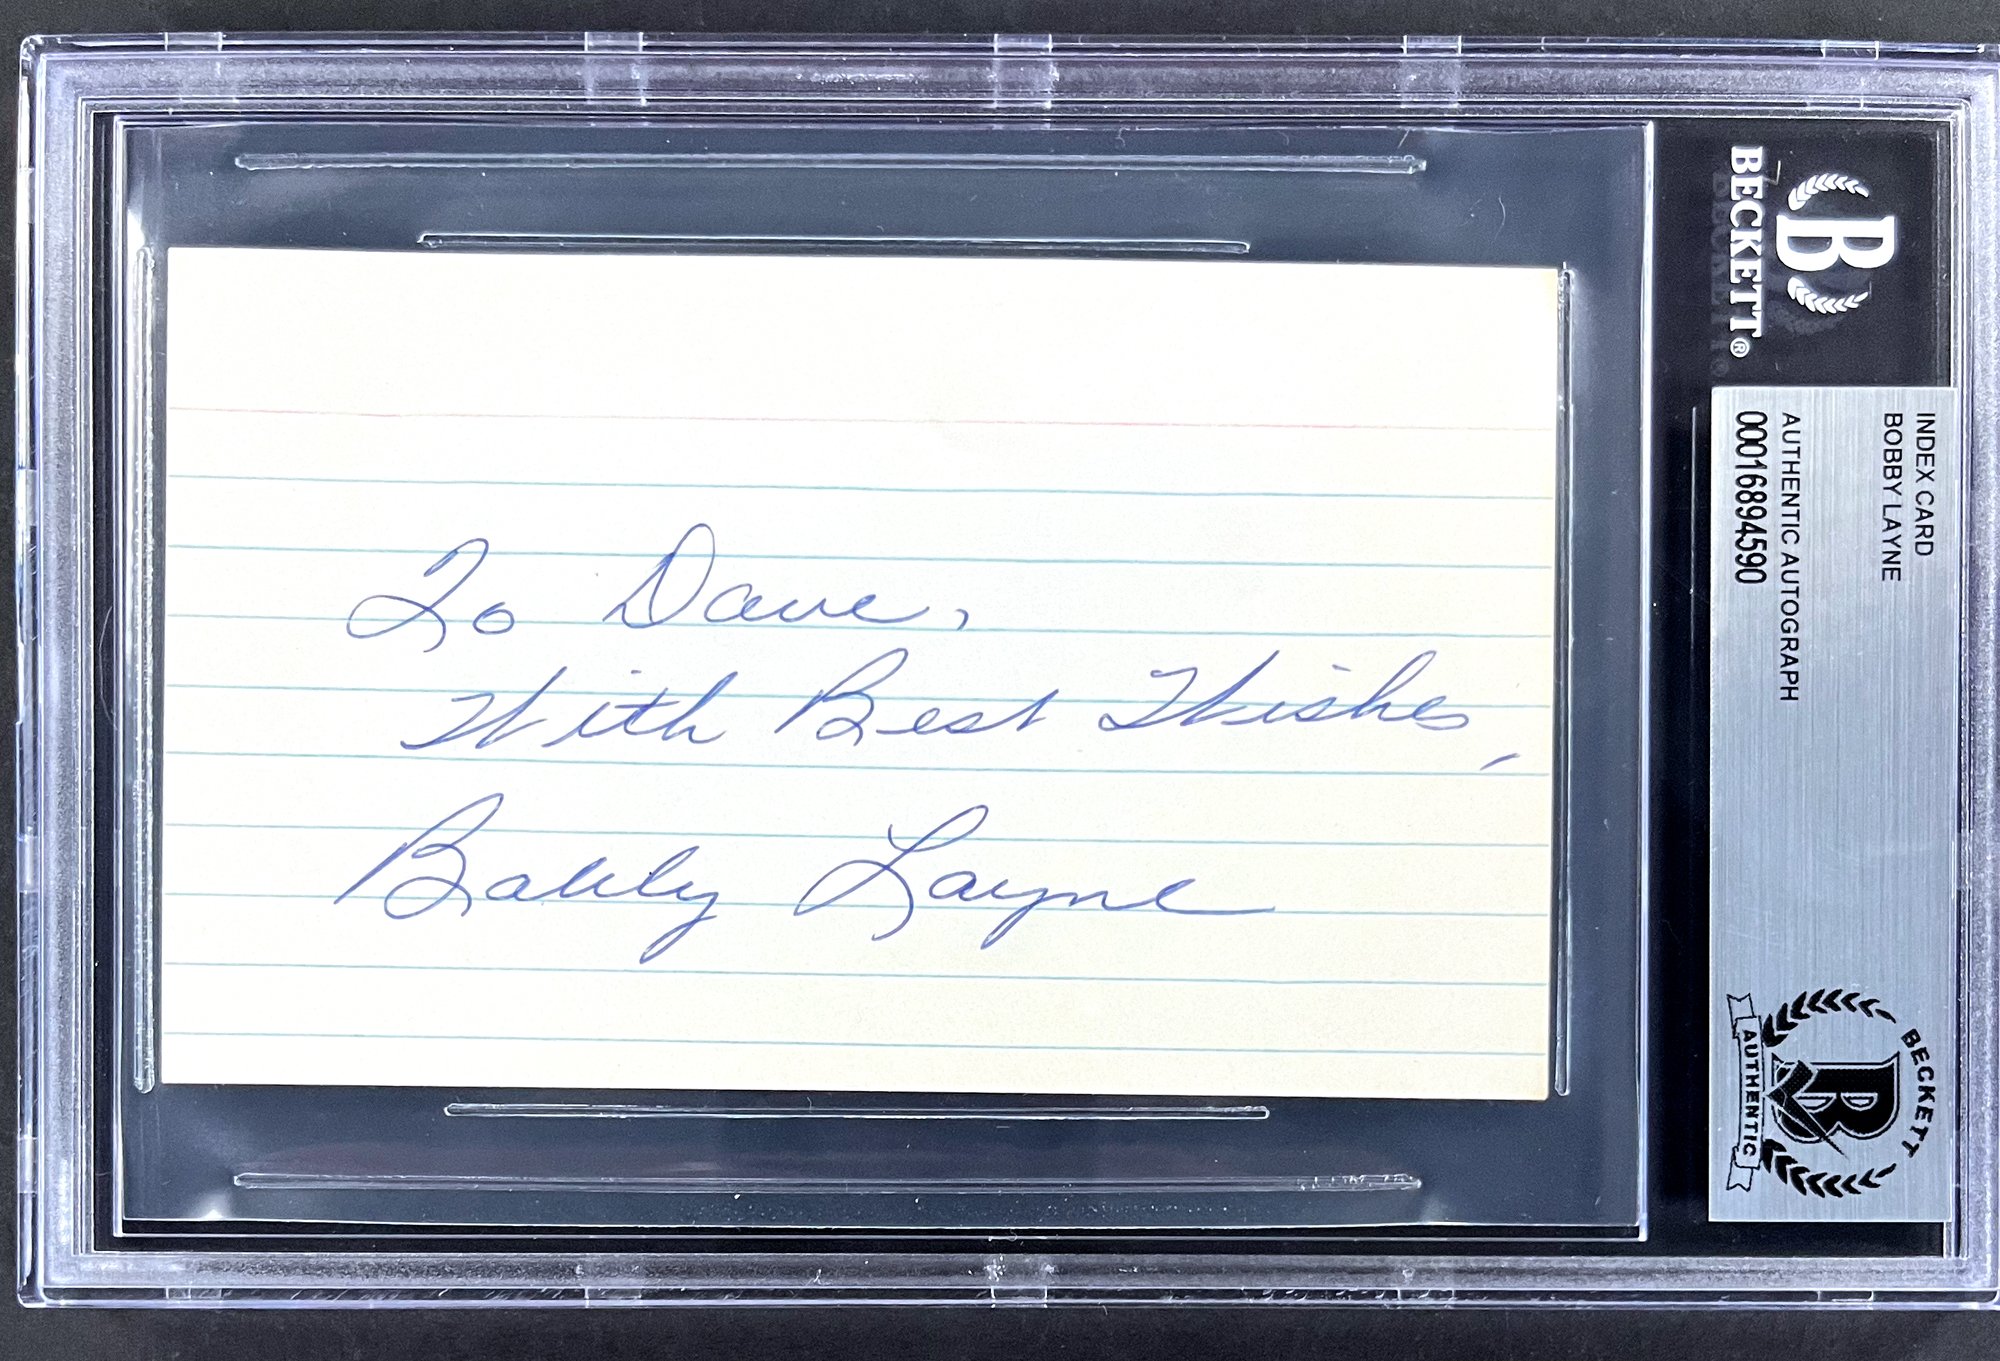 To Dave,
With Best Wishes,
Bobby Layne
B
BECKETT®
INDEX CARD
BOBBY LAYNE
AUTHENTIC AUTOGRAPH
00016894590
BECKETT
B
AUTHENTIC